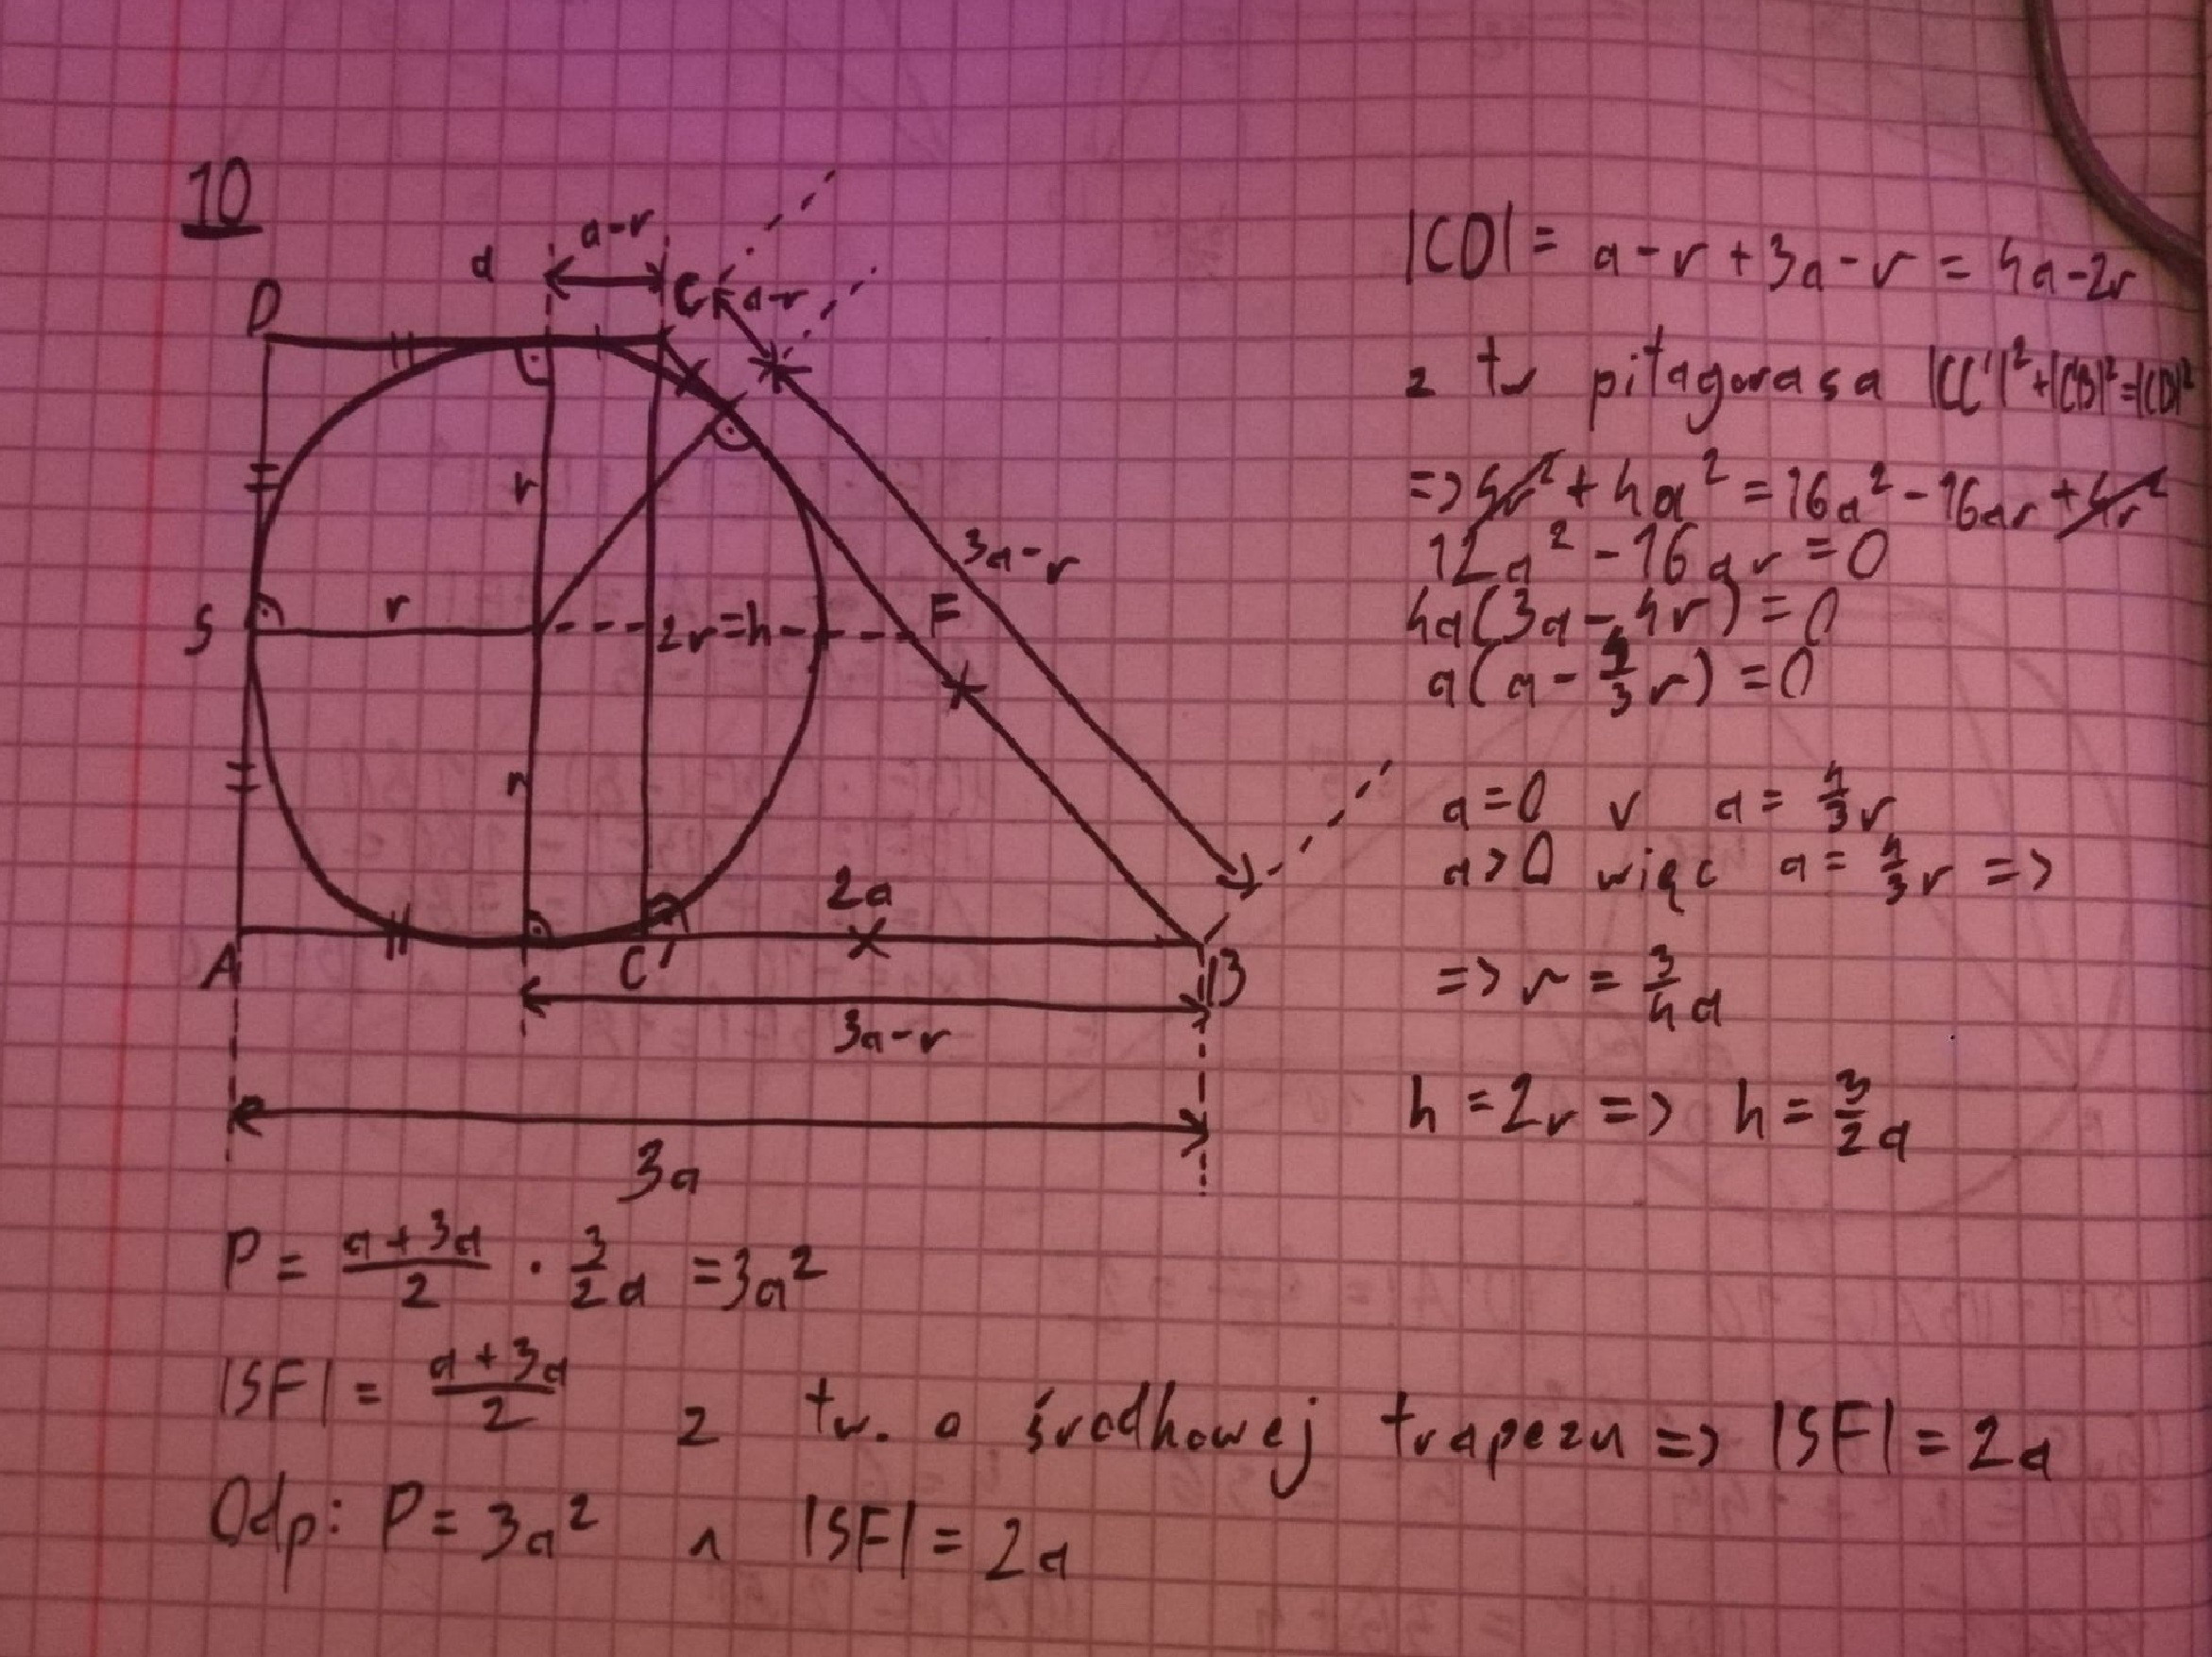 10
a
a-r
D
C
a-r
r
S
r
2r=h
F
3a-r
r
2a
A
C'
B
3a-r
3a
|CD| = a-r+3a-r = 4a-2r
z tw pitagorasa |CC'|²+|C'B|²=|CD|²
=> 4r² + 4a² = 16a² - 16ar + 4r²
12a² - 16ar = 0
4a(3a - 4r) = 0
a(a - 4/3 r) = 0
a=0 v a = 4/3 r
a>0 więc a = 4/3 r =>
=> r = 3/4 a
h = 2r => h = 3/2 a
P = (a+3a)/2 · 3/2 a = 3a²
|SF| = (a+3a)/2 z tw. o środkowej trapezu => |SF| = 2a
Odp: P = 3a² ∧ |SF| = 2a